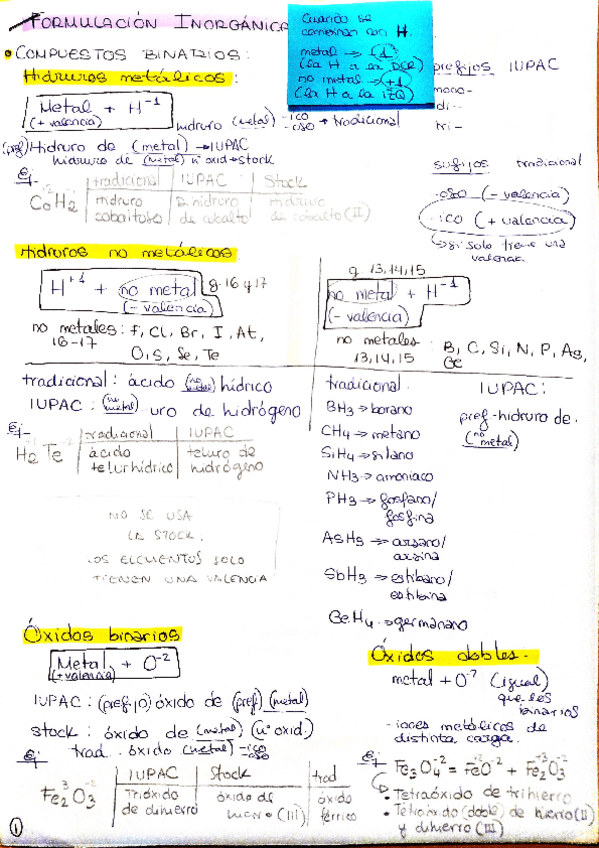 FORMULACIÓN INORGÁNICA
Cuando se
combinan con H.
metal → (-1)
(la H a la DER)
no metal → (+1)
(la H a la IZQ)
• COMPUESTOS BINARIOS:
Hidruros metálicos:
Metal + H⁻¹
(+ valencia)
hidruro (metal) -ico -oso → tradicional
(pref) Hidruro de (metal) → IUPAC
hidruro de (metal) nº oxid → stock
prefijos IUPAC
mono-
di-
tri-
sufijos tradicional
·oso (- valencia)
·ico (+ valencia)
↳ si solo tiene una
valencia
Ej- tradicional | IUPAC | Stock
CoH₂ | Hidruro cobaltoso | Dihidruro de cobalto | Hidruro de cobalto (II)
Hidruros no metálicos
H⁺¹ + no metal g. 16 y 17
(- valencia)
no metales: F, Cl, Br, I, At,
16-17
O, S, Se, Te
g. 13, 14, 15
no metal + H⁻¹
(- valencia)
no metales: B, C, Si, N, P, As,
13, 14, 15
tradicional: ácido (no metal) hídrico
IUPAC: (no metal) uro de hidrógeno
Ej- tradicional | IUPAC
H₂Te | ácido telurhídrico | teluro de hidrógeno
NO SE USA
LA STOCK.
LOS ELEMENTOS SOLO
TIENEN UNA VALENCIA
tradicional.
BH₃ → borano
CH₄ → metano
SiH₄ → silano
NH₃ → amoniaco
PH₃ → fosfano/
fosfina
AsH₃ → arsano/
arsina
SbH₃ → estibano/
estibina
GeH₄ → germanano
IUPAC:
pref-hidruro de.
(no metal)
Óxidos binarios
Metal + O⁻²
(+ valencia)
IUPAC: (prefijo) óxido de (pref) (metal)
stock: óxido de (metal) (nº oxid.)
trad. óxido (metal) -ico -oso
Ej- IUPAC | Stock | trad
Fe₂O₃ | Trióxido de dihierro | óxido de hierro (III) | óxido férrico
Óxidos dobles.
metal + O⁻² (igual)
que los
binarios
-iones metálicos de
distinta carga.
Ej- Fe₃O₄⁻² = FeO⁻² + Fe₂O₃⁻²
• Tetraóxido de trihierro
• Tetraóxido (doble) de hierro (II)
y dihierro (III)
1